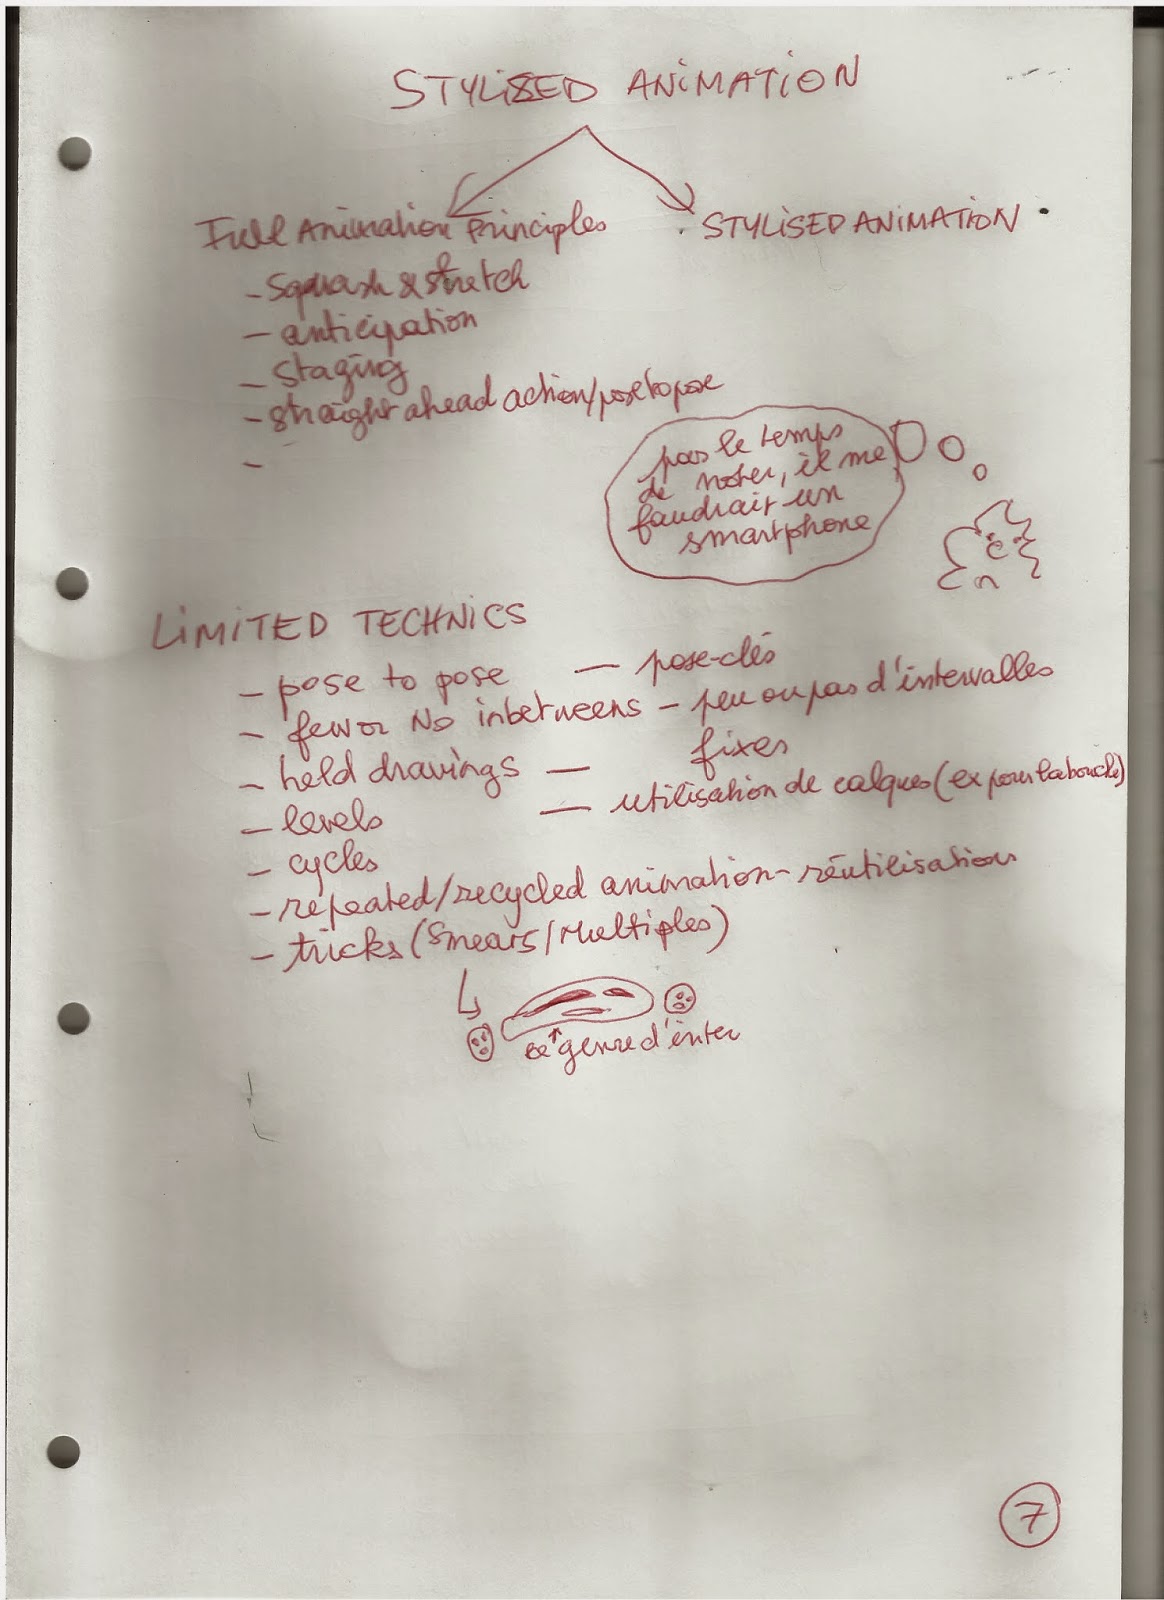 STYLISED ANIMATION
Full Animation Principles
STYLISED ANIMATION
- Squash & stretch
- anticipation
- Staging
- straight ahead action/pose to pose
-
pas le temps
de noter, il me
faudrait un
smartphone
LIMITED TECHNICS
- pose to pose — pose-clés
- few or No inbetweens - peu ou pas d'intervalles
- held drawings — fixes
- levels — utilisation de calques (ex pour la bouche)
- cycles
- repeated/recycled animation - réutilisation
- tricks (Smears/Multiples)
ce genre d'inter
7